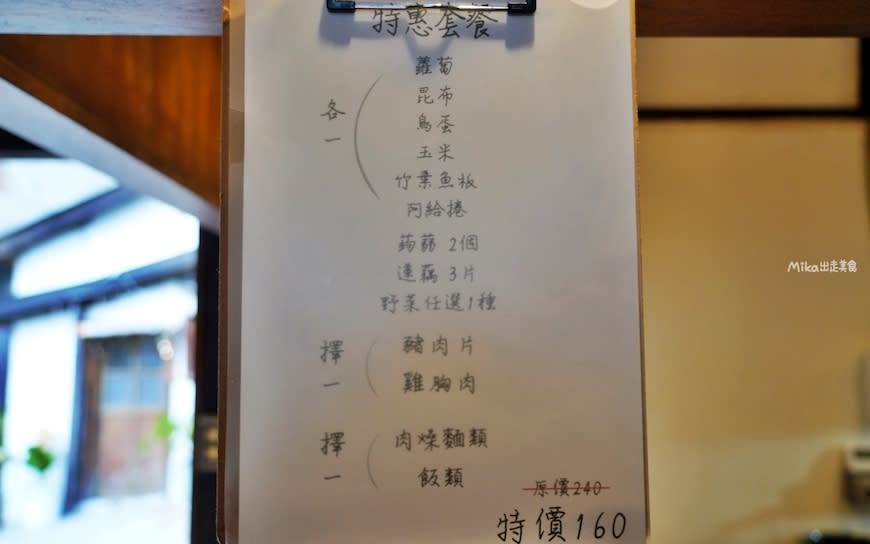 特惠套餐
各一
蘿蔔
昆布
鳥蛋
玉米
竹葉魚板
阿給捲
蒟蒻 2個
蓮藕 3片
野菜任選1種
擇一
豬肉片
雞胸肉
擇一
肉燥麵類
飯類
原價240
特價160
Mika出走美食